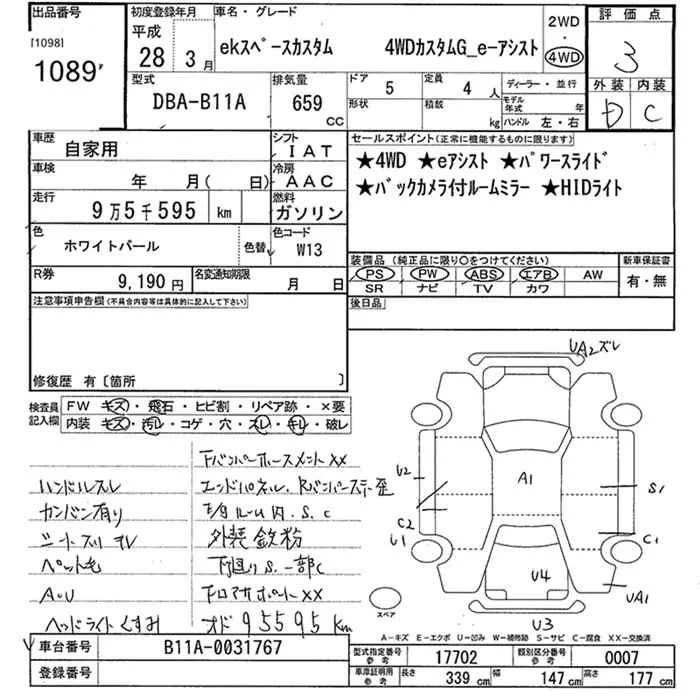 出品番号
[1098]
1089
初度登録年月
平成
28 3月
車名・グレード
ekスペースカスタム 4WDカスタムG_e-アシスト
2WD
・
4WD
評価点
3
外装 内装
D C
型式
DBA-B11A
排気量
659
CC
ドア
5
定員
4 人
形状
積載
kg
ディーラー・並行
モデル年式 年
ハンドル 左・右
車歴
自家用
シフト
IAT
車検
年 月( 日)
冷房
AAC
走行
9万5千595 km
燃料
ガソリン
色
ホワイトパール
色替
色コード
W13
R券
9,190円
名変通知期限
月 日
セールスポイント(正常に機能するものに限ります)
★4WD ★eアシスト ★パワースライド
★バックカメラ付ルームミラー ★HIDライト
装備品 (純正品に限り○をつけてください)
PS PW ABS エアB AW
SR ナビ TV カワ
新車保証書
有・無
後日品
注意事項申告欄(不具合内容等は具体的に記入して下さい)
修復歴 有〔箇所 〕
検査員記入欄
FW キズ・飛石・ヒビ割・リペア跡・×要
内装 キズ・汚レ・コゲ・穴・スレ・キレ・破レ
Fバンパーホースメント××
ハンドルスレ
エンドパネル、Rバンパーステー歪
カンバン有り
シートスリキレ
外装鉄粉
ペット毛
下廻りS、一部C
A・U
Fロアサポート××
ヘッドライトくすみ
オド95595km
UA2ズレ
U2
A1
S1
C2
U1
C1
U4
UA1
U3
スペア
A-キズ E-エクボ U-凹み W-補修跡 S-サビ C-腐食 XX-交換済
車台番号
B11A-0031767
登録番号
型式指定番号
参考
17702
類別区分番号
参考
0007
車庫証明用
参考
長さ 339cm
幅 147cm
高さ 177cm